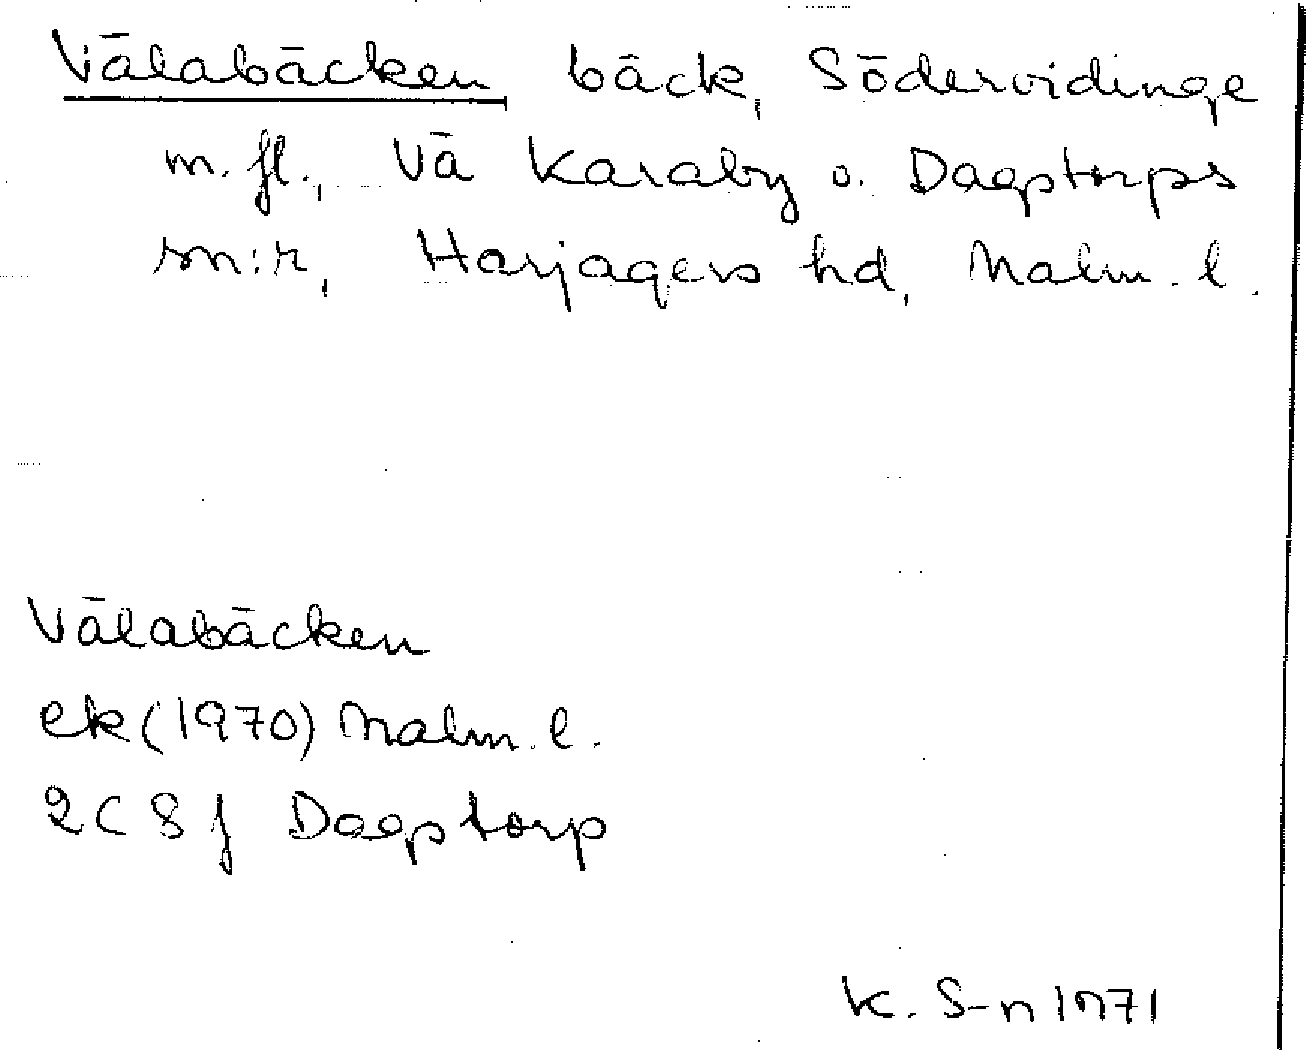 Välabäcken bäck, Södervidinge
m.fl., Vä Karaby o. Dagstorps
sn:r, Harjagers hd, Malm. l.
Välabäcken
ek (1970) Malm. l.
2C 8j Dagstorp
K. S-n 1971